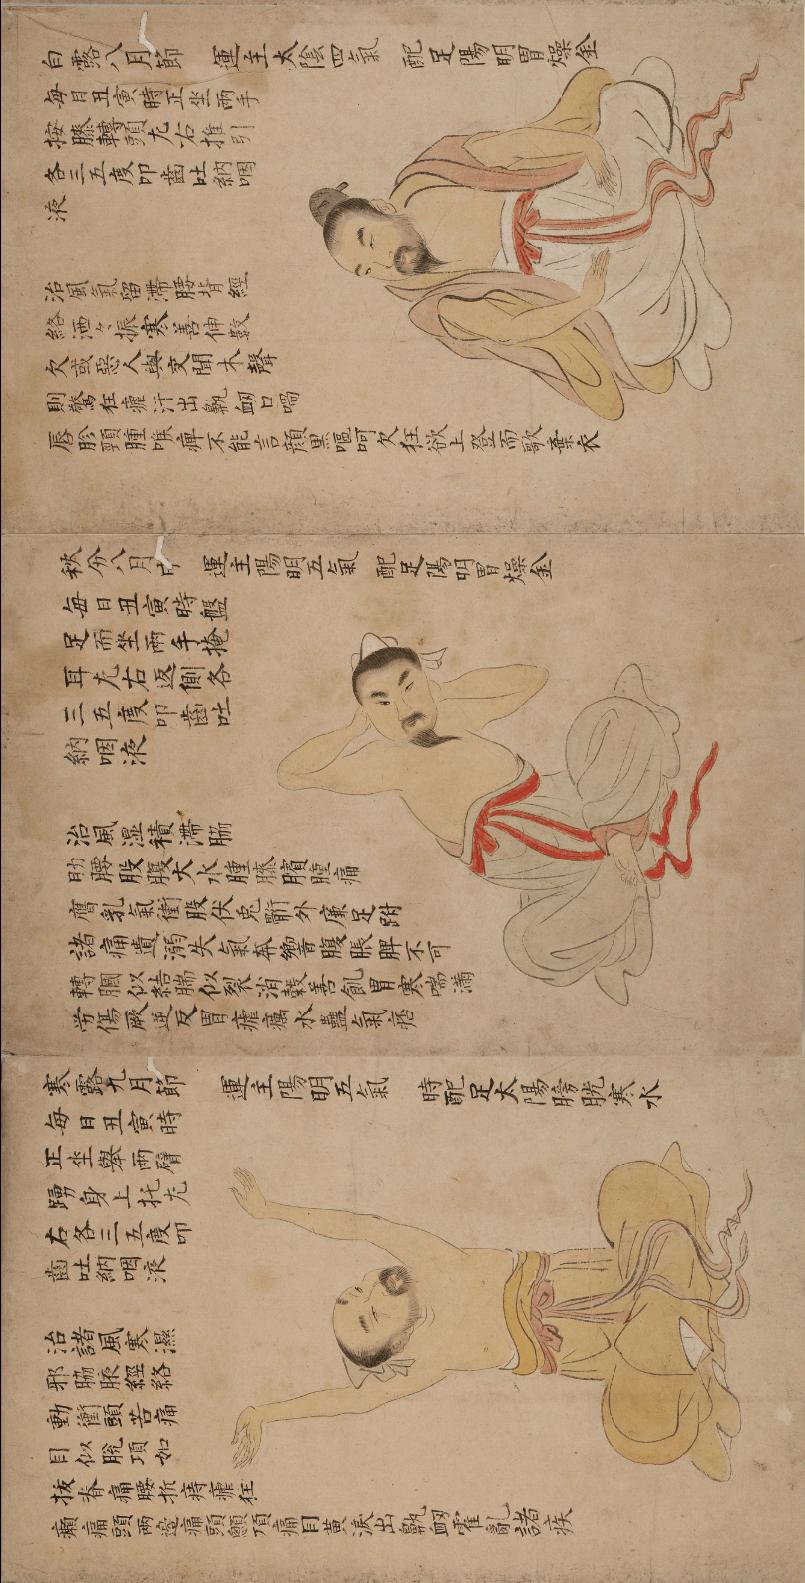 白露八月節 運主太陰四氣 配足陽明胃燥金
每日丑寅時正坐兩手
按膝轉頭左右推引
各三五度叩齒吐納咽
液
治風氣留滯腰背經
絡洒々振寒善伸數
欠或惡人與交聞木聲
則驚狂瘧汗出鼽衄口喎
唇胗頸腫喉痺不能言顏黑嘔呵欠狂欲上登而歌棄衣
秋分八月 運主陽明五氣 配足陽明胃燥金
每日丑寅時盤
足而坐兩手掩
耳左右返側各
三五度叩齒吐
納咽液
治風湿積滯脇
肋腰股腹大水腫膝臏腫痛
膺乳氣衝股伏兎䯒外廉足跗
諸痛遺溺失氣奔響腹脹脾不可
轉膕似結腨似裂消穀善飢胃寒喘滿
勞傷厥逆反胃瘧癘水蠱氣痞
寒露九月節 運主陽明五氣 時配足太陽膀胱寒水
每日丑寅時
正坐舉兩臂
踴身上托左
右各三五度叩
齒吐納咽液
治諸風寒濕
邪脇脈經絡
動衝頭苦痛
目似脫項如
拔脊痛腰折痔瘧狂
癲痛頭兩邊痛頭顖頂痛目黃淚出鼽衄霍亂諸疾